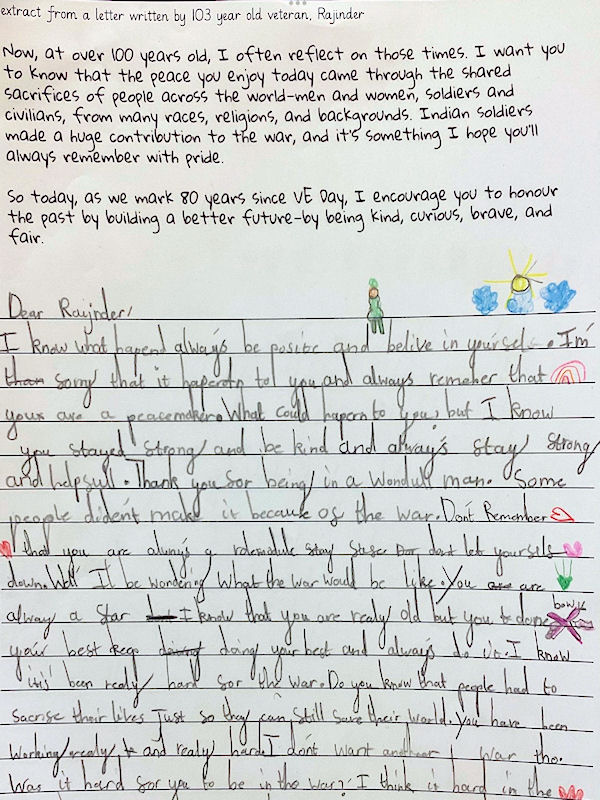 extract from a letter written by 103 year old veteran, Rajinder
Now, at over 100 years old, I often reflect on those times. I want you
to know that the peace you enjoy today came through the shared
sacrifices of people across the world-men and women, soldiers and
civilians, from many races, religions, and backgrounds. Indian soldiers
made a huge contribution to the war, and it's something I hope you'll
always remember with pride.
So today, as we mark 80 years since VE Day, I encourage you to honour
the past by building a better future-by being kind, curious, brave, and
fair.
Dear Raijnder,
I know what hapend always be positic and belive in yourself. I'm
than sorry that it to you and always remeber that
your are a peacemaker. What could hapern to you, but I know
you stayed strong and be kind and always stay strong
and helpsull. Thank you for being in a Wondull man. Some
people dident make it because of the war. Dont Remember
that you are always a rolemodule stay dont let yourself
down. Well I'l be wondering What the war would be like. You are are
alway a star I know that you are realy old but you done
bow
your best doing your best and always do it. I know
it's been realy hard for the war. Do you know that people had to
sacrise their lifes Just so they can still save their world. You have been
working realy and realy hard. I don't want another war tho.
Was it hard for you to be in the war? I think it hard in the